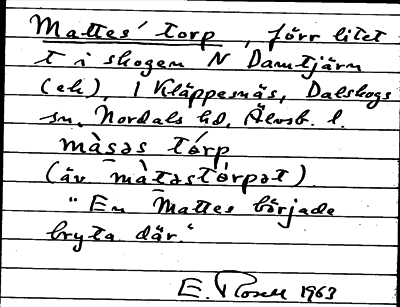 Mattes' torp, förr litet
t i skogen N Damtjärn
(ek), i Kläppesnäs, Dalskogs
sn, Nordals hd, Älvsb. l.
màsəs tórp
(äv màtəstórpət).
"En Mattes började
bryta där."
E. Rosell 1963